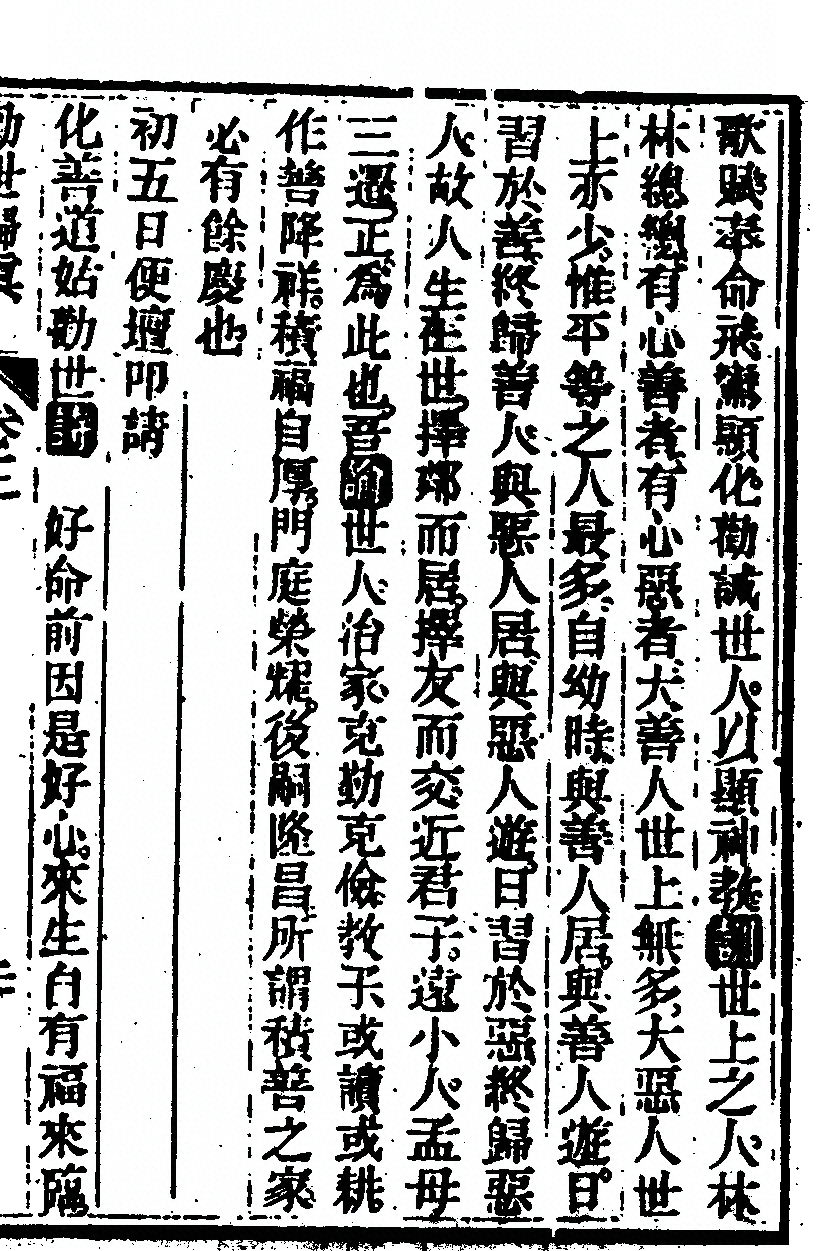 歌賦奉命飛鸞顯化。勸誡世人。以顯神教。世上之人。林
林總總。有心善者。有心惡者。大善人世上無多。大惡人世
上亦少。惟平等之人最多。自幼時與善人居。與善人遊。日
習於善。終歸善人。與惡人居。與惡人遊。日習於惡。終歸惡
人。故人生在世。擇鄰而居。擇友而交。近君子。遠小人。孟母
三遷。正為此也。吾諭世人。治家克勤克儉。教子或讀或耕。
作善降祥。積福自厚。門庭榮耀。後嗣隆昌。所謂積善之家。
必有餘慶也
初五日便壇叩請
化善道姑勸世 好命前因是好心。來生自有福來臨。
勸世歸真 卷三